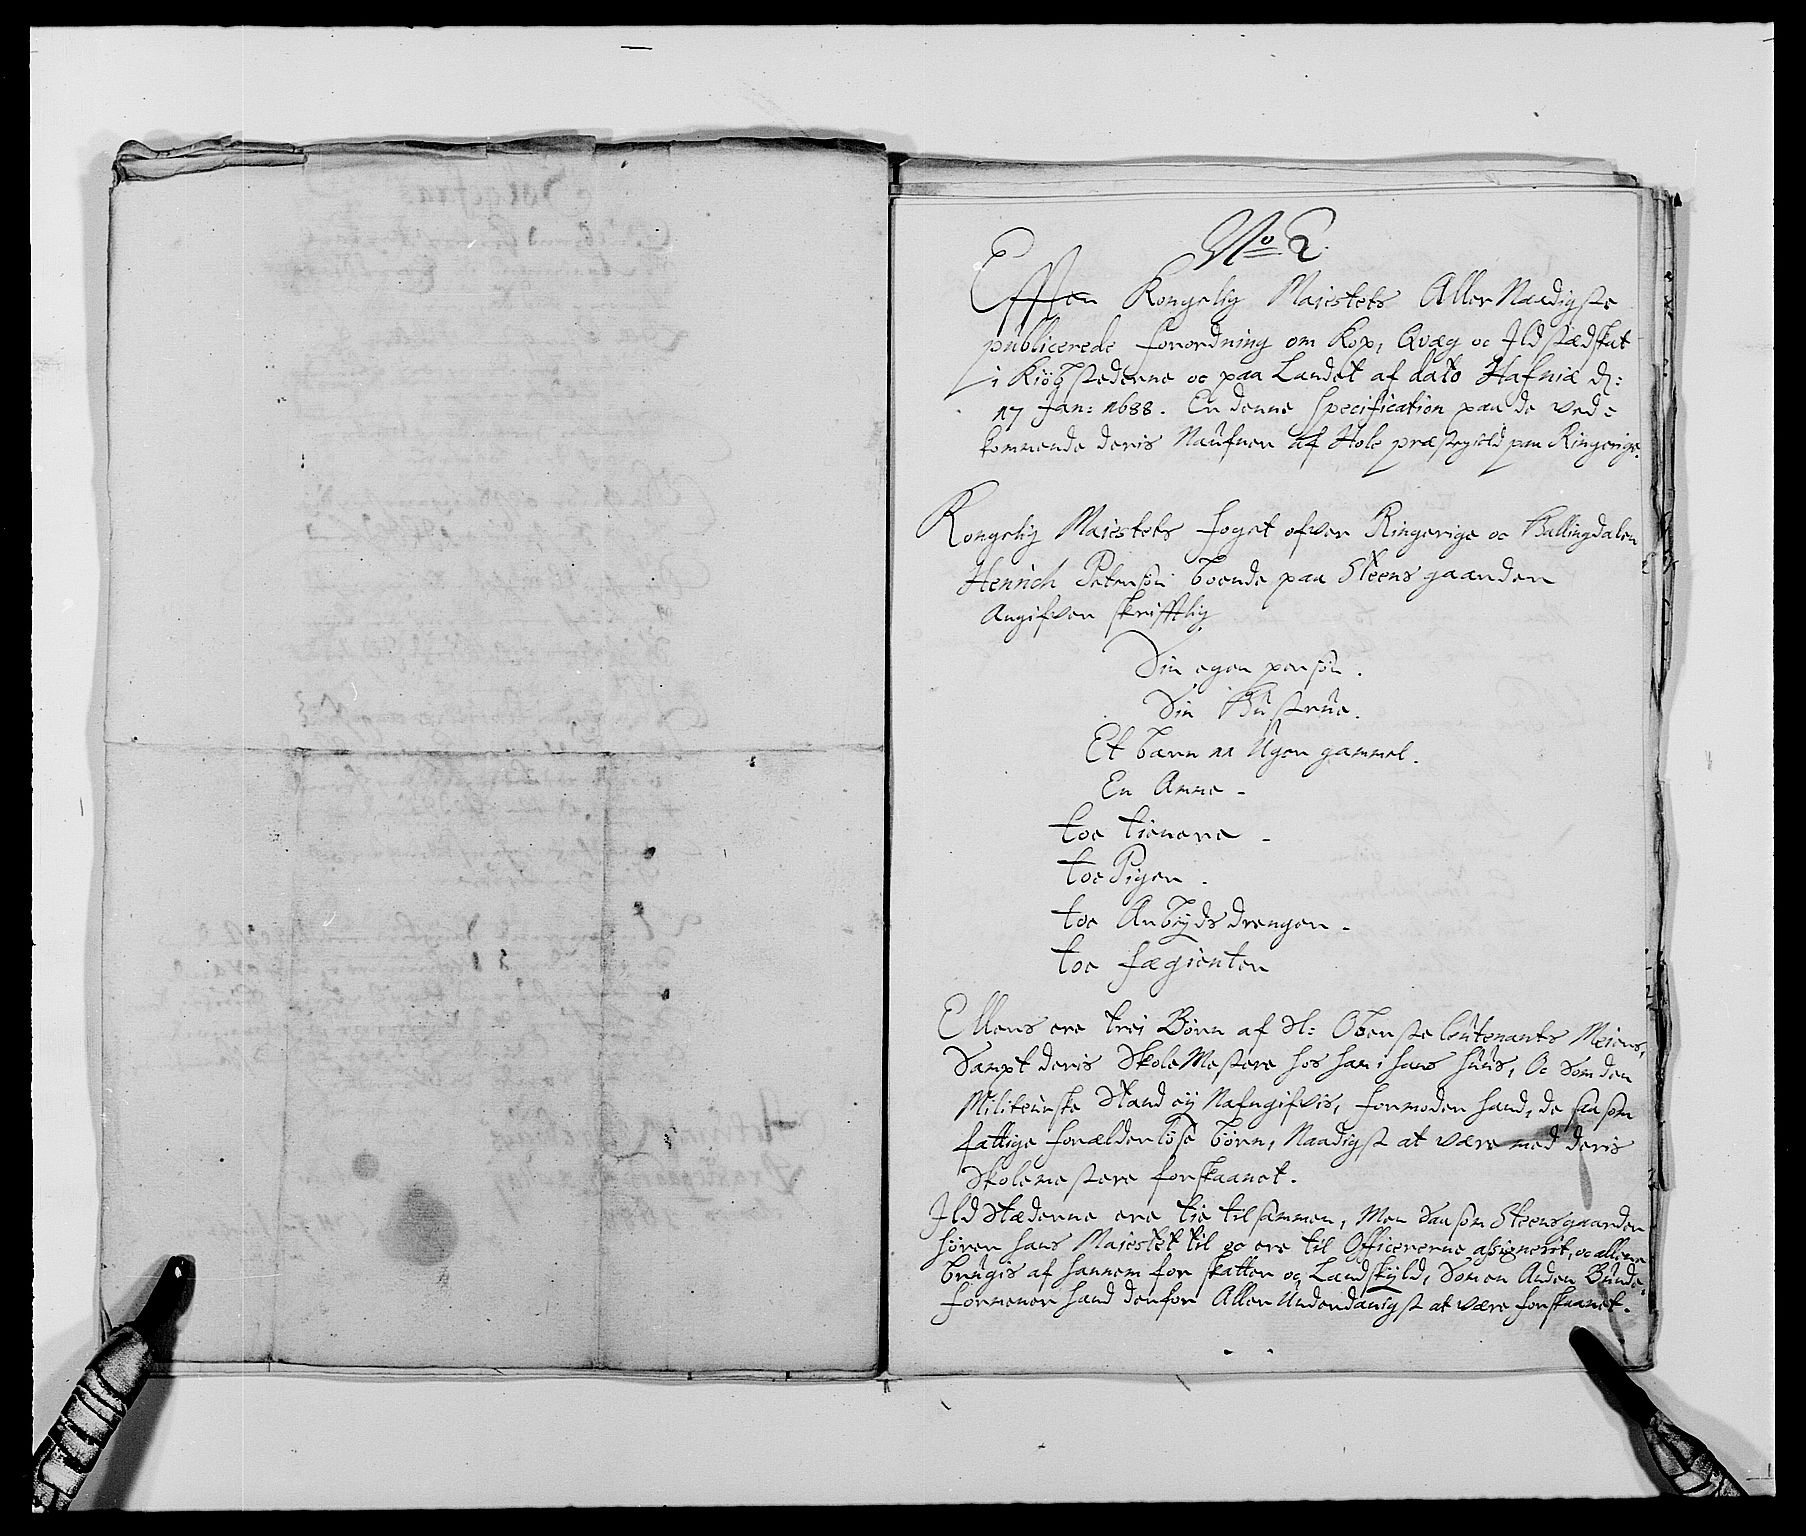 No 2.
Efften Kongelig Majestets Aller Naadigste
publicerede forordning om Kop, Qvæg oc Ildstædskat
i Kiøbstederne oc paa Landet af dato Hafniæ d:
17 Jan: 1688. Er denne Specification paa de ved=
kommende deris Naufner af Hole præstegield paa Ringerige.
Kongelig Majestets foget ofver Ringerige oc Hallingdalen
Henrich Petersøn boende paa Steens gaarden
Angifver skrifftlig
Sin egen persøn.
Sin Hustrue.
Et barn 11 Uger gammel.
En Amme -
toe tienere -
toe Piger -
toe Arbyds drenger -
toe fægienter
Ellers ere trei Børn af Sl: Oberste leutenants Meiers,
Sampt deris SkoleMestere hos ham i hans huus, Oc Som den
Militeriske Stand ey Nafngifvis, formoder hand, de saasom
fattige forælderløse børn, Naadigst at være med deris
Skolemestere forskaanet.
Ild Stæderne ere tie tilsammen, Men Saasom Steens gaarden
hører hans Majestet til oc ere til Officererne assignerit, oc allene
brugis af hannem for skatter og Landskyld, Som en Anden Bunde,
formener hand derfor Aller Underdanigst at være forskaanet.